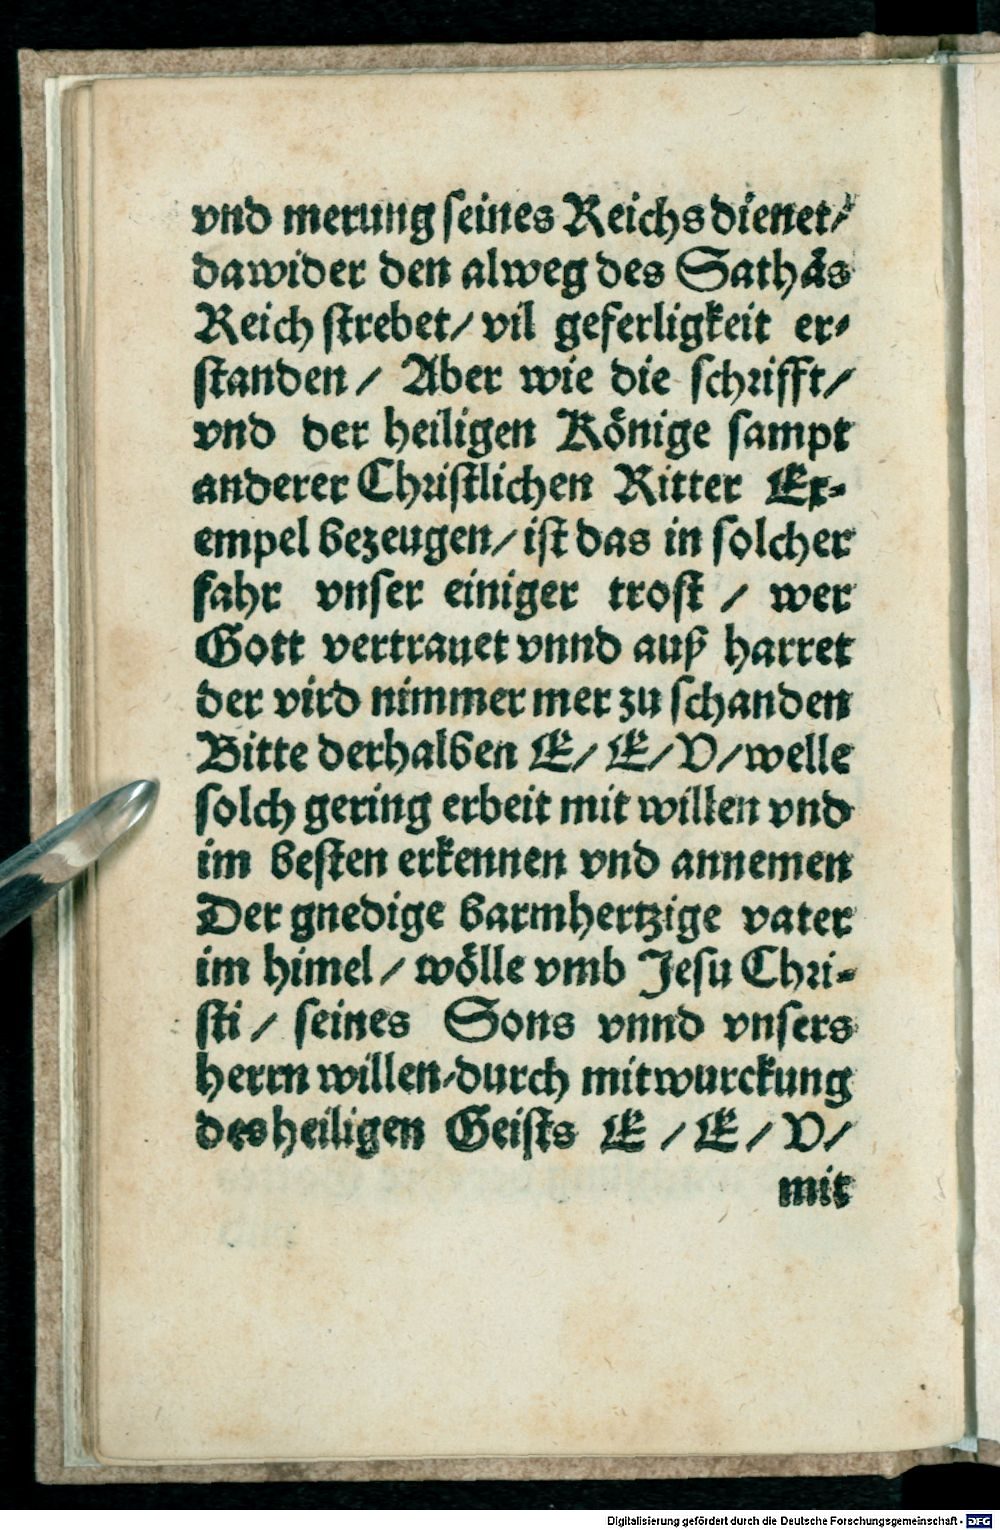 vnd merung seines Reichs dienet/
dawider den alweg des Sathãs
Reich strebet/ vil geferligkeit er-
standen / Aber wie die schrifft/
vnd der heiligen Könige sampt
anderer Christlichen Ritter Ex-
empel bezeugen/ ist das in solcher
fahr vnser einiger trost / wer
Gott vertrauet vnnd auß harret
der vird nimmer mer zu schanden
Bitte derhalben E/ E/ V/ welle
solch gering erbeit mit willen vnd
im besten erkennen vnd annemen
Der gnedige barmhertzige vater
im himel / wölle vmb Jesu Chri-
sti / seines Sons vnnd vnsers
herrn willen/ durch mitwurckung
des heiligen Geists E / E / V /
mit
Digitalisierung gefördert durch die Deutsche Forschungsgemeinschaft - DFG